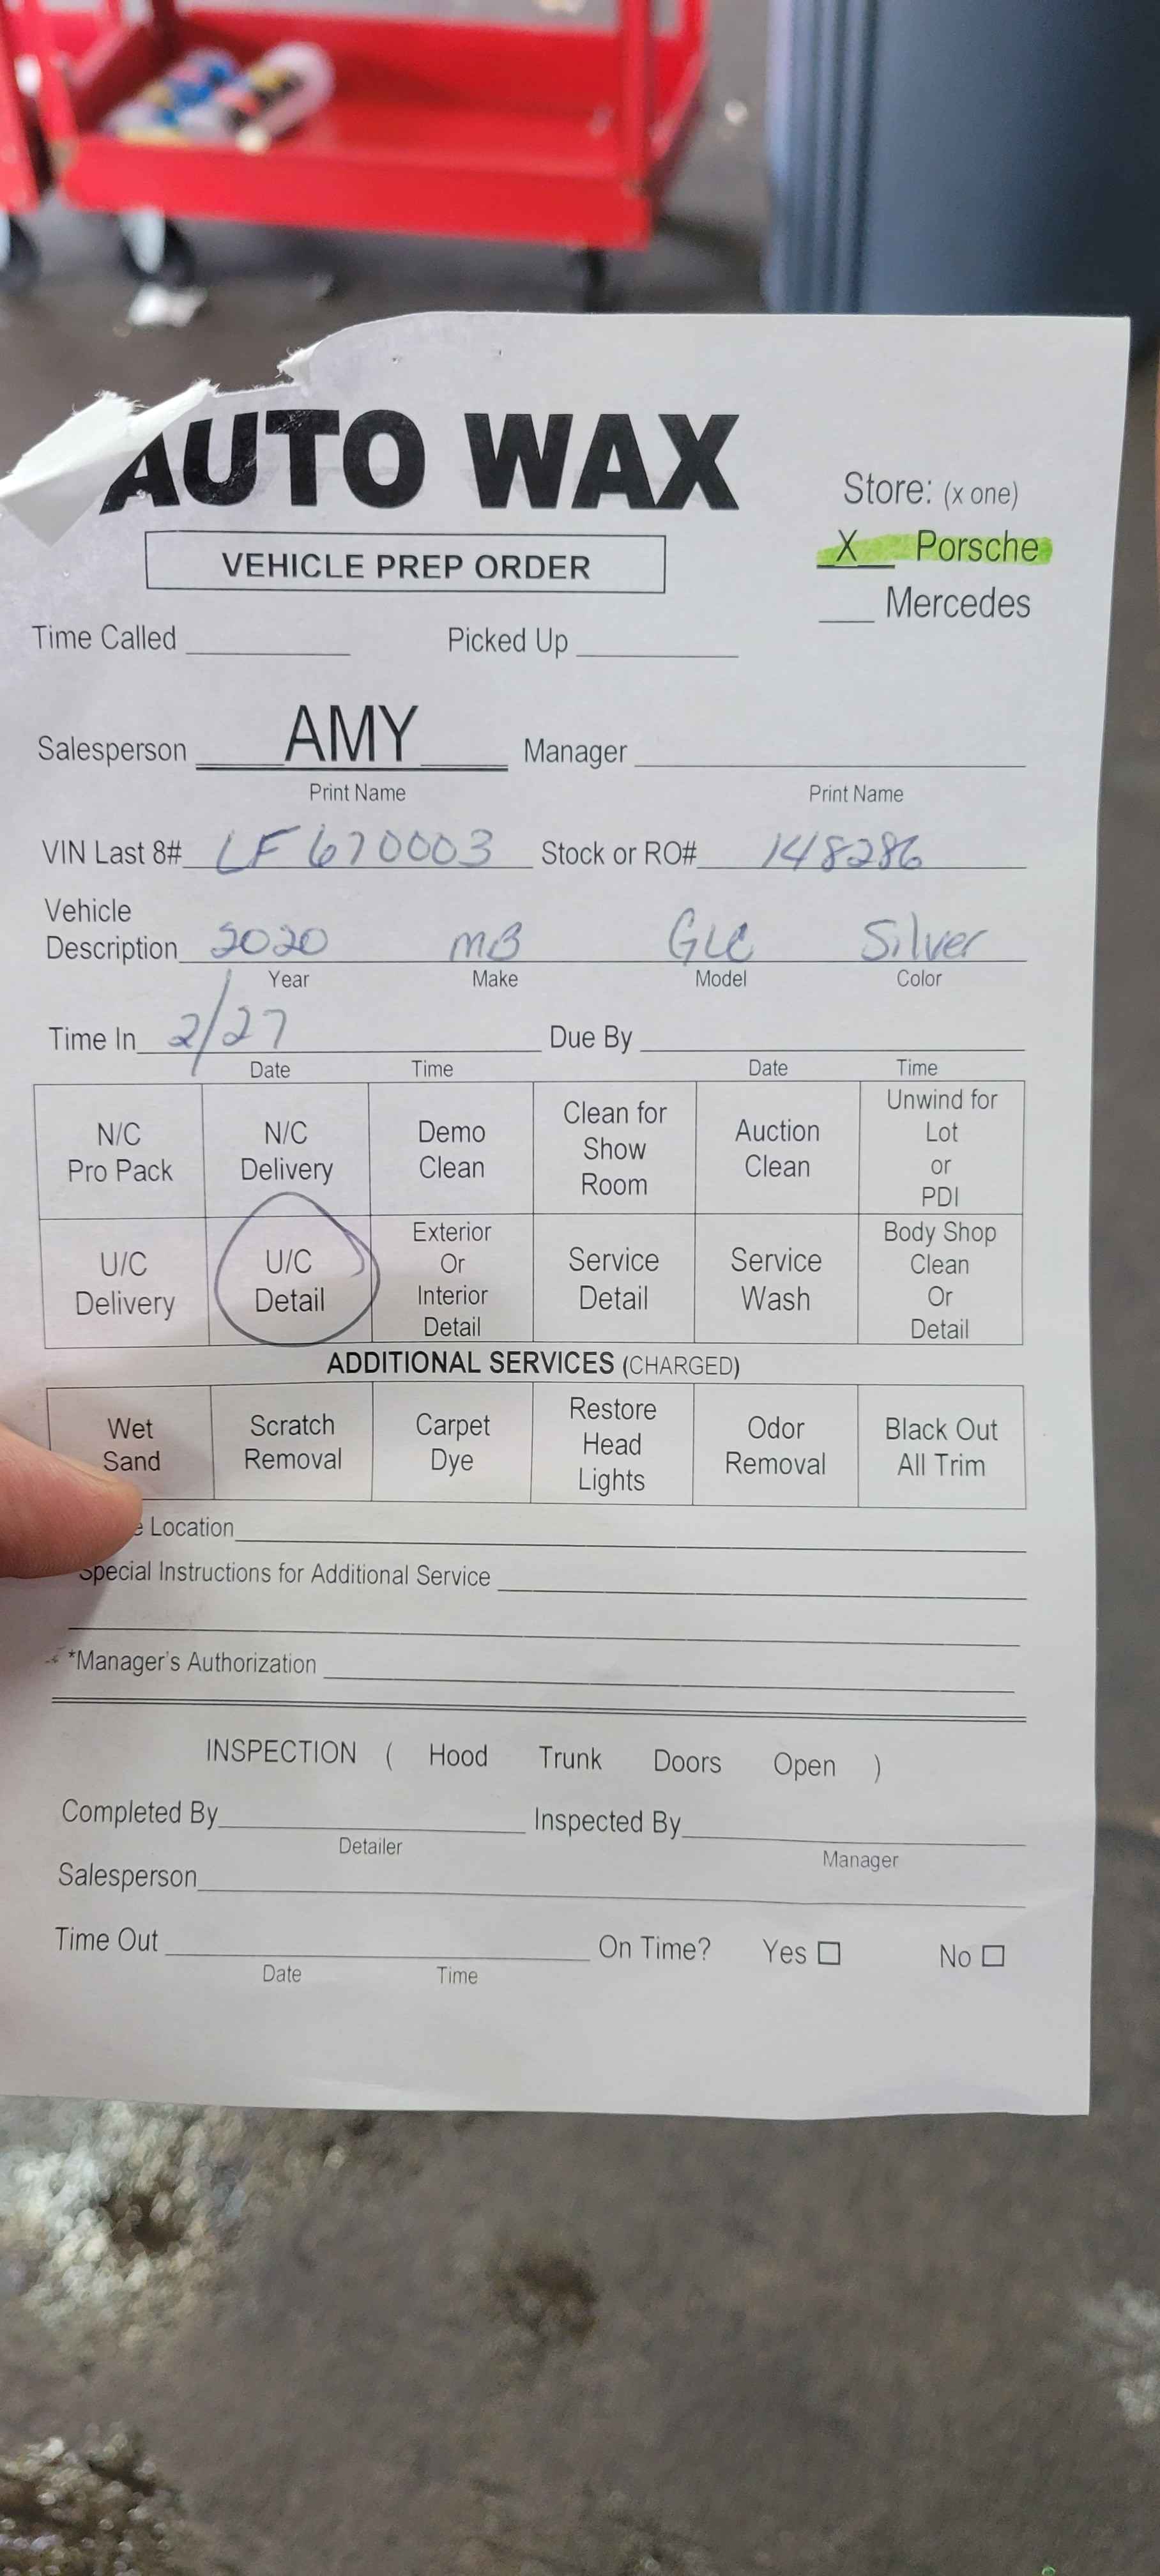 AUTO WAX
VEHICLE PREP ORDER
Store: (x one)
X Porsche
___ Mercedes
Time Called ________ Picked Up ________
Salesperson AMY Manager ________
Print Name Print Name
VIN Last 8# LF670003 Stock or RO# 148286
Vehicle
Description 2020 MB GLC Silver
Year Make Model Color
Time In 2/27 Due By ________
Date Time Date Time
N/C Pro Pack N/C Delivery Demo Clean Clean for Show Room Auction Clean Unwind for Lot or PDI
U/C Delivery U/C Detail Exterior Or Interior Detail Service Detail Service Wash Body Shop Clean Or Detail
ADDITIONAL SERVICES (CHARGED)
Wet Sand Scratch Removal Carpet Dye Restore Head Lights Odor Removal Black Out All Trim
Location ________
Special Instructions for Additional Service ________
*Manager's Authorization ________
INSPECTION ( Hood Trunk Doors Open )
Completed By ________ Inspected By ________
Detailer Manager
Salesperson ________
Time Out ________ On Time? Yes ☐ No ☐
Date Time